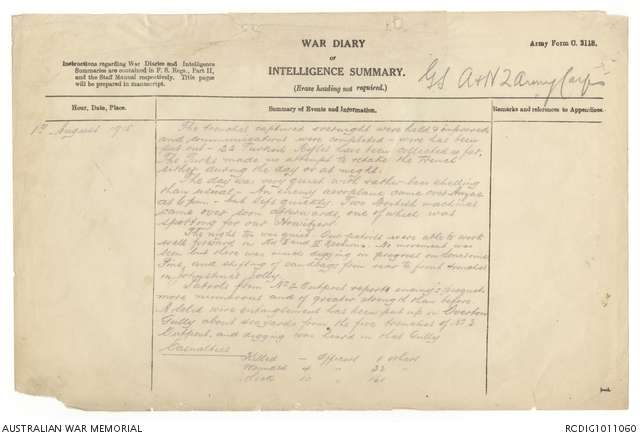 WAR DIARY
or
INTELLIGENCE SUMMARY.
(Erase heading not required.)
Army Form C. 2118.
Instructions regarding War Diaries and Intelligence
Summaries are contained in F. S. Regs., Part II,
and the Staff Manual respectively. Title pages
will be prepared in manuscript.
GS A & N Z Army Corps
Hour, Date, Place.
Summary of Events and Information.
Remarks and references to Appendices.
1st August 1915
The trenches captured overnight were held & improved
and communications were completed - wire has been
put out - 22 Turkish Rifles has been collected so far.
The Turks made no attempt to retake the trench
either during the day or at night.
The day was very quiet with rather less shelling
than usual. - An enemy aeroplane came over Anzac
at 6 pm. - but left quickly. Two British machines
came over soon afterwards, one of which was
spotting for our Howitzers.
The night too was quiet. Our patrols were able to work
well forward in No I and II Sections. No movement was
seen but there was much digging in progress on Lonesome
Pine, and shifting of sandbags from rear to front trenches
in Johnstons Jolly.
Patrols from No 2 Outpost reports enemy's
more numerous and of greater strength than before.
A solid wire entanglement has been put up in Overton
Gully about yards from the fire trenches of No 3
Outpost, and digging was heard in that Gully
Casualties
Killed - Officers 8 other
Wounded 4 " 22 "
Sick 10 "